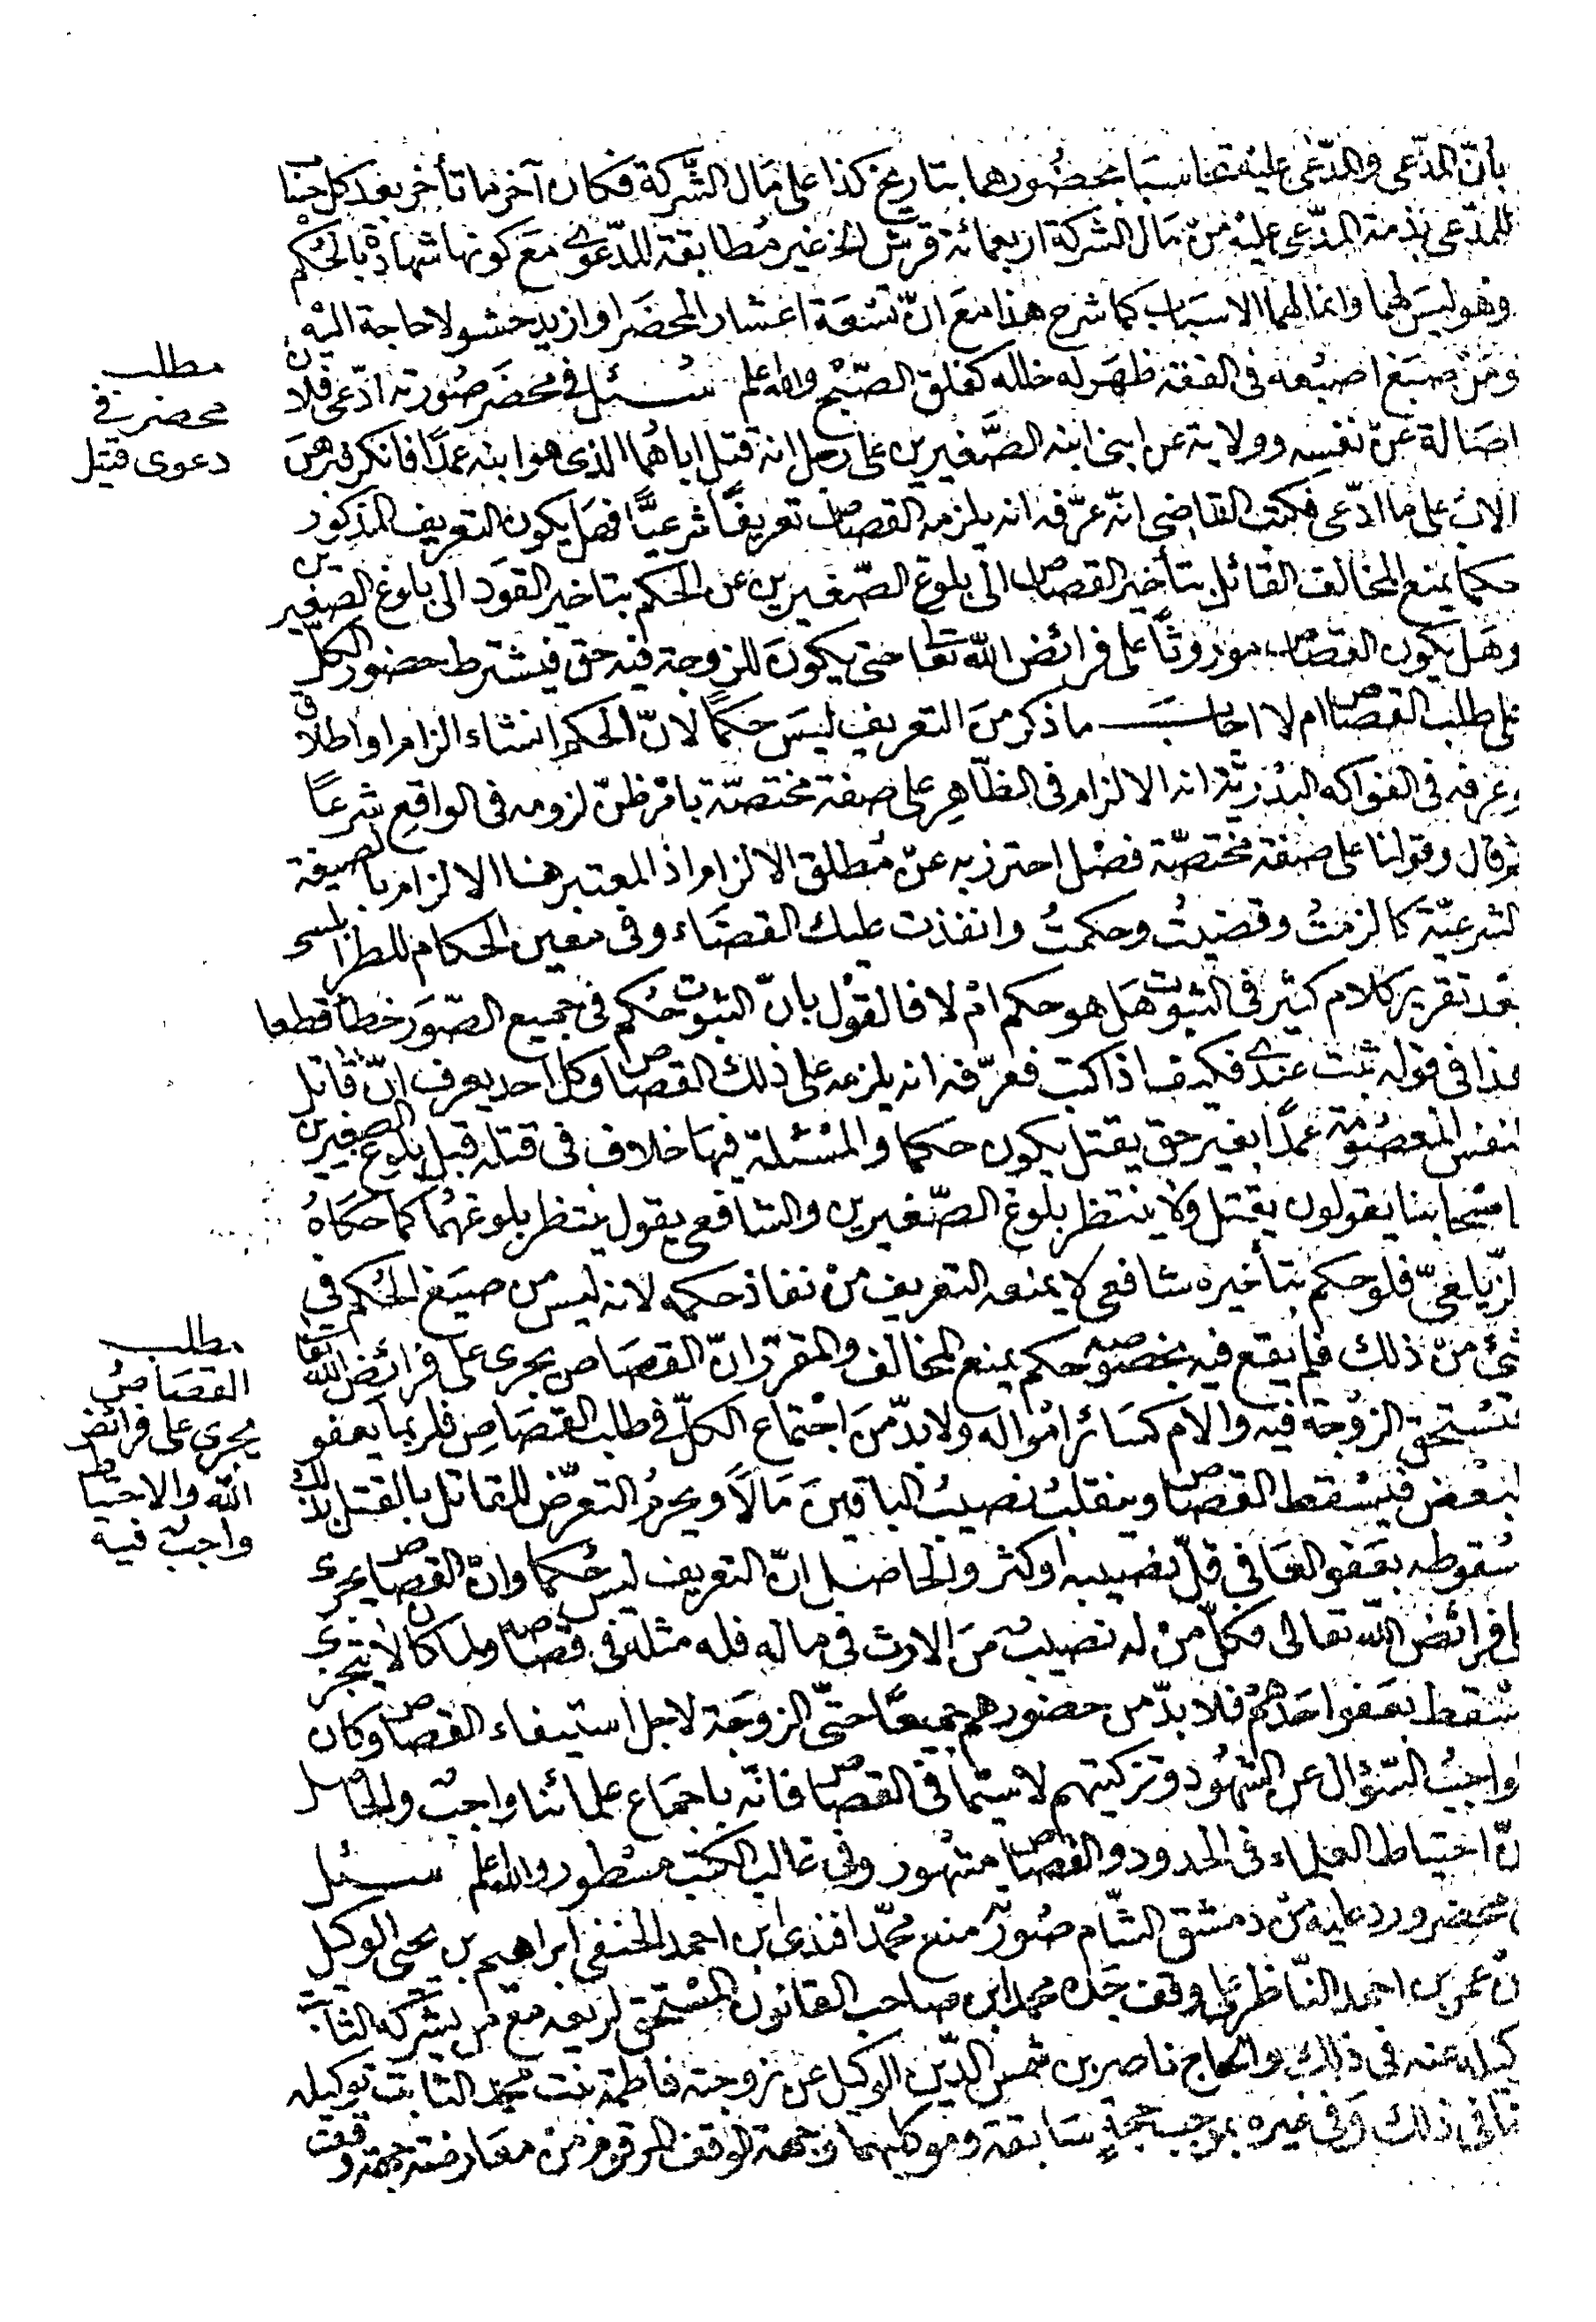 بانّ المدّعى والمدّعى عليه تحاسبا بحضورهما بتاريخ كذا على مال الشركة فكان آخر ما تأخر بعد كل حساب
للمدّعى بذمة المدّعى عليه منّ مال الشركة اربعمائة قرش الخ غير مطابقة للدّعوى مع كونها شهادة بالحكم
وهو ليس لهما وانما لهما الاسباب كما شرح هذا مع انّ تسعة اعشار المحضر او ازيد حشو لا حاجة اليه
ومنْ صبغ اصبعه فى الفقه ظهر له خلله كفلق الصّبح والله اعلم سئل فى محضر صورته ادّعى فلان
مطلب
محضر فى
دعوى قتيل
اصالة عنْ نفسه وولاية عن ابنى ابنه الصّغيرين على رجل انه قتل اباهما الذى هو ابنه عمدًا فانكر فبرهن
الاب على ما ادّعى فكتب القاضى انّه عرّفه انه يلزمه القصاص تعريفًا شرعيًّا فهل يكون التعريف المذكور
حكما يمنع المخالف القائل بتأخير القصاص الى بلوغ الصّغيرين عن الحكم بتاخير القود الى بلوغ الصغيرين
وهل يكون القصاص موروثًا على فرائض الله تعا حتى يكون للزوجة فيه حق فيشترط حضور الكلّ
على طلب القصاص ام لا اجاب ما ذكر من التعريف ليس حكمًا لانّ الحكم انشاء الزام او اطلاق
وعرفه فى الفواكه البدريّة انه الالزام فى الظّاهر على صفة مختصّة بامْر ظنّ لزومه فى الواقع شرعًا
ثم قال وقولنا على صفة مختصّة فصْل احترز به عنْ مُطلق الالزام اذ المعتبر هنا الالزام بالصيغة
الشرعيّة كالزمتُ وقضيتُ وحكمتُ وانفذت عليك القضاء وفى معين الحكام للطرابلسى
بعد تقرير كلام كثير فى الثبوت هل هو حكم امْ لا فالقوْل بانّ الثبوت حُكم فى جميع الصّوَر خطأ قطعا
هذا فى قوله ثبت عندى فكيف اذا كتب فعرّفه انه يلزمه على ذلك القصاص وكل احد يعرف انّ قاتل
النفس المعصومة عمدًا بغير حق يقتل يكون حكما والمسْئلة فيها خلاف فى قتله قبل بلوغ الصغيرين
اصْحابنا يقولون يقتل ولا ينتظر بلوغ الصّغيرين والشافعى يقول ينتظر بلوغهُما كما حكاهُ
الزّيلعىّ فلو حكم بتأخيره شافعى لا يمنعه التعريف منْ نفاذ حكمه لانه ليس من صيغ الحكم فى
شئ منْ ذلك فلم يقع فيه بخصوصه حكم يمنع المخالف والمقرّر انّ القصاص يجرى على فرائض الله تعا
مطلب
القصاصُ
يُجرى على فرائض
الله والاحتياط
واجبٌ فيه
فتستحق الزوْجة فيه والام كسَائر امْواله ولا بدّ منَ اجْتماع الكلّ فى طلب القصَاصِ فلربما يعفو
البعْض فيسْقط القصاص وينقلبُ نصيبُ الباقين مَالًا ويحرمُ التعرّض للقاتل بالقتل بذلك
سُقوطه بعَفو العَافى قلّ نصيبه او كثر والحاصل انّ التعريف ليس حُكما وانّ القصاص يجرى
على فرائض الله تعالى فكلّ منْ له نصيبٌ منَ الارث فى ماله فله مثله فى قصاص ولما كان لا يتجزى
يسْقط بعَفو احَدهمْ فلا بدّ من حضورهم جميعًا حتّى الزوجَة لاجل استيفاء القصاص وكان
الواجبُ السّؤال عن الشهُود وتزكيتهم لا سيّما فى القصاص فانّه باجمَاع علمائنا واجبٌ والحاصل
انّ احتياط العلماء فى الحدود والقصاص مشهُور وفى غالب الكتب مسْطور والله اعلم سئل
فى محضر ورد عليه منْ دمشق الشّام صُورته منع محمّد افندى ابن احمد الحنفى ابراهيم بن يحيى الوكيل
عن عمر بن احمد النّاظر على وقف جَدّه محمد ابن صاحب القانون المسْتحق لريعه معَ منْ يشركه الثابت
توكيله عنه فى ذلك والحاج ناصر بن شمس الدّين الوكيل عنْ زوجته فاطمة بنت محمد الثابت توكيله
عنها فى ذلك وَفى غيره بموجب حجّةٍ سَابقة وموكليهما وجهة الوقف المرقوم منْ معَارضته جهة وقف